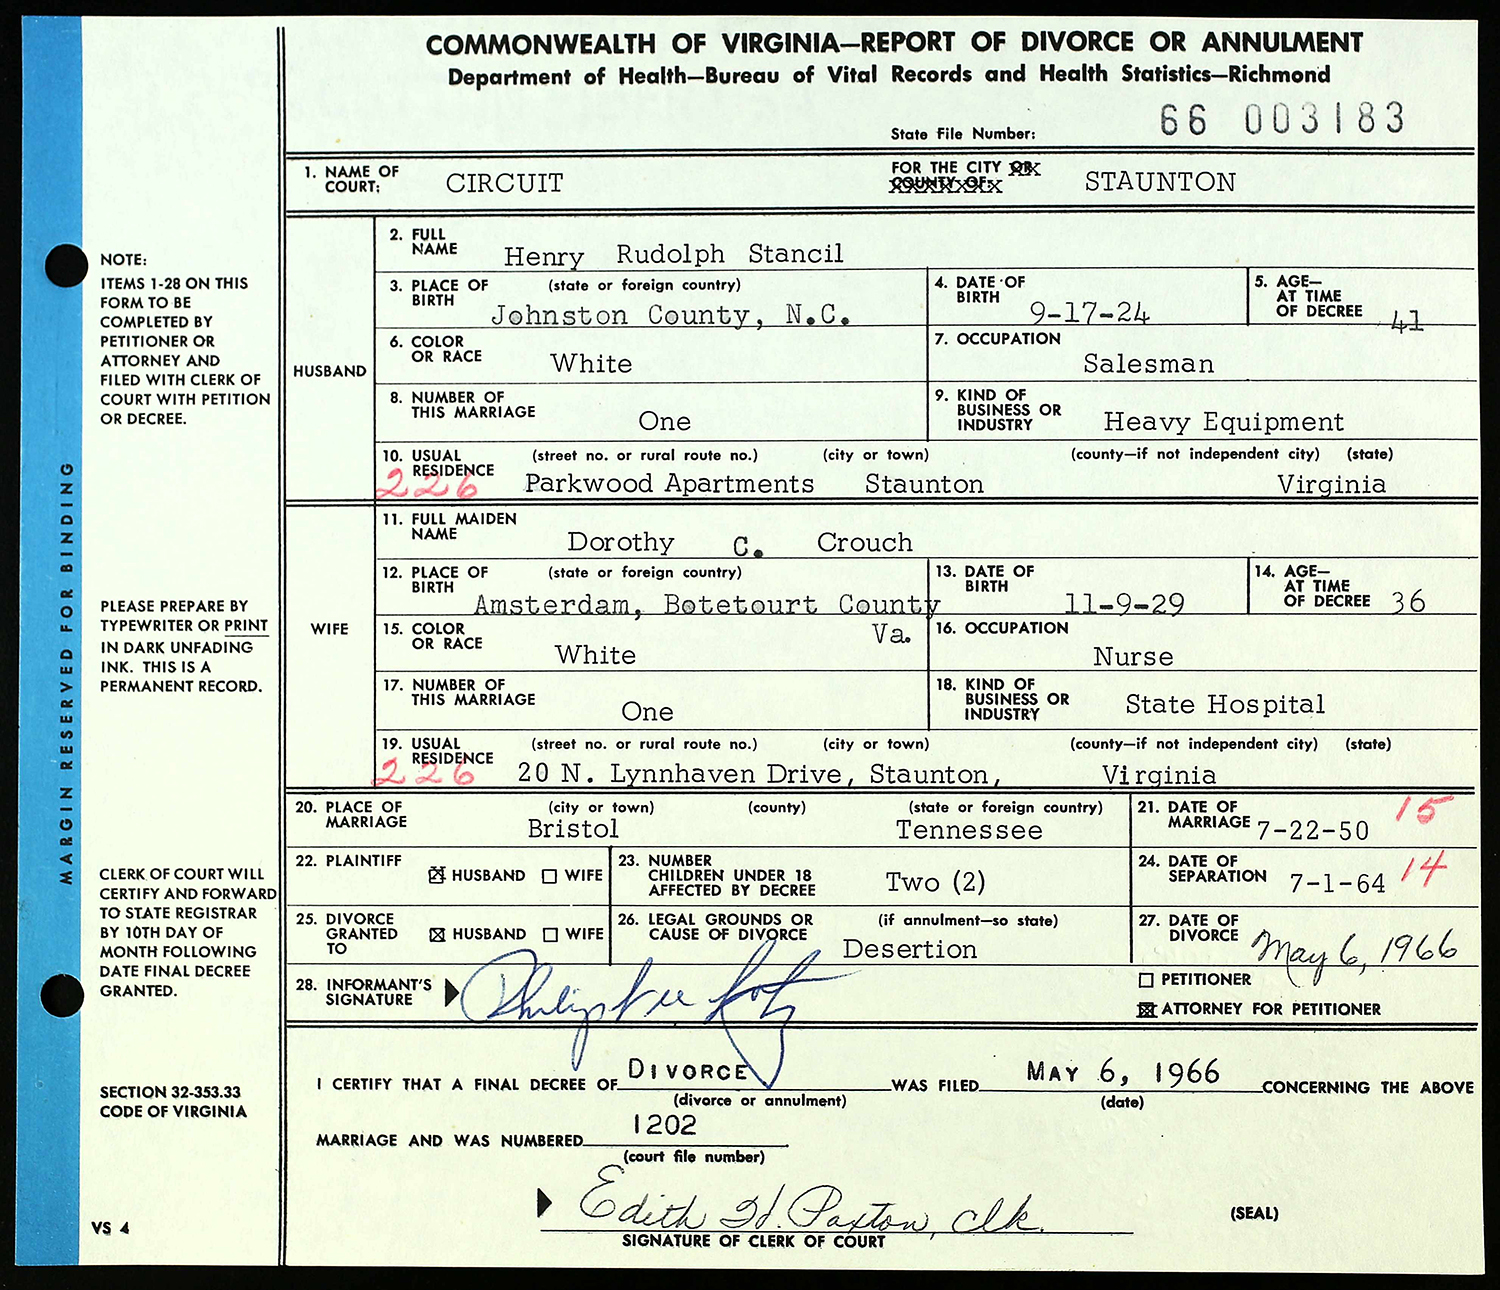 COMMONWEALTH OF VIRGINIA—REPORT OF DIVORCE OR ANNULMENT
Department of Health—Bureau of Vital Records and Health Statistics—Richmond
State File Number: 66 003183
1. NAME OF COURT: CIRCUIT FOR THE CITY OR COUNTY OF: STAUNTON
HUSBAND
2. FULL NAME Henry Rudolph Stancil
3. PLACE OF BIRTH (state or foreign country) Johnston County, N.C.
4. DATE OF BIRTH 9-17-24
5. AGE— AT TIME OF DECREE 41
6. COLOR OR RACE White
7. OCCUPATION Salesman
8. NUMBER OF THIS MARRIAGE One
9. KIND OF BUSINESS OR INDUSTRY Heavy Equipment
10. USUAL RESIDENCE (street no. or rural route no.) (city or town) (county—if not independent city) (state)
226 Parkwood Apartments Staunton Virginia
WIFE
11. FULL MAIDEN NAME Dorothy C. Crouch
12. PLACE OF BIRTH (state or foreign country) Amsterdam, Botetourt County Va.
13. DATE OF BIRTH 11-9-29
14. AGE— AT TIME OF DECREE 36
15. COLOR OR RACE White
16. OCCUPATION Nurse
17. NUMBER OF THIS MARRIAGE One
18. KIND OF BUSINESS OR INDUSTRY State Hospital
19. USUAL RESIDENCE (street no. or rural route no.) (city or town) (county—if not independent city) (state)
226 20 N. Lynnhaven Drive, Staunton, Virginia
20. PLACE OF MARRIAGE (city or town) (county) (state or foreign country)
Bristol Tennessee
21. DATE OF MARRIAGE 7-22-50 15
22. PLAINTIFF HUSBAND WIFE
23. NUMBER CHILDREN UNDER 18 AFFECTED BY DECREE Two (2)
24. DATE OF SEPARATION 7-1-64 14
25. DIVORCE GRANTED TO HUSBAND WIFE
26. LEGAL GROUNDS OR CAUSE OF DIVORCE (if annulment—so state) Desertion
27. DATE OF DIVORCE May 6, 1966
28. INFORMANT'S SIGNATURE
PETITIONER
ATTORNEY FOR PETITIONER
I CERTIFY THAT A FINAL DECREE OF DIVORCE WAS FILED MAY 6, 1966 CONCERNING THE ABOVE
(divorce or annulment) (date)
MARRIAGE AND WAS NUMBERED 1202
(court file number)
Edith H. Paxton, Clk.
SIGNATURE OF CLERK OF COURT
(SEAL)
MARGIN RESERVED FOR BINDING
NOTE:
ITEMS 1-28 ON THIS
FORM TO BE
COMPLETED BY
PETITIONER OR
ATTORNEY AND
FILED WITH CLERK OF
COURT WITH PETITION
OR DECREE.
PLEASE PREPARE BY
TYPEWRITER OR PRINT
IN DARK UNFADING
INK. THIS IS A
PERMANENT RECORD.
CLERK OF COURT WILL
CERTIFY AND FORWARD
TO STATE REGISTRAR
BY 10TH DAY OF
MONTH FOLLOWING
DATE FINAL DECREE
GRANTED.
SECTION 32-353.33
CODE OF VIRGINIA
VS 4